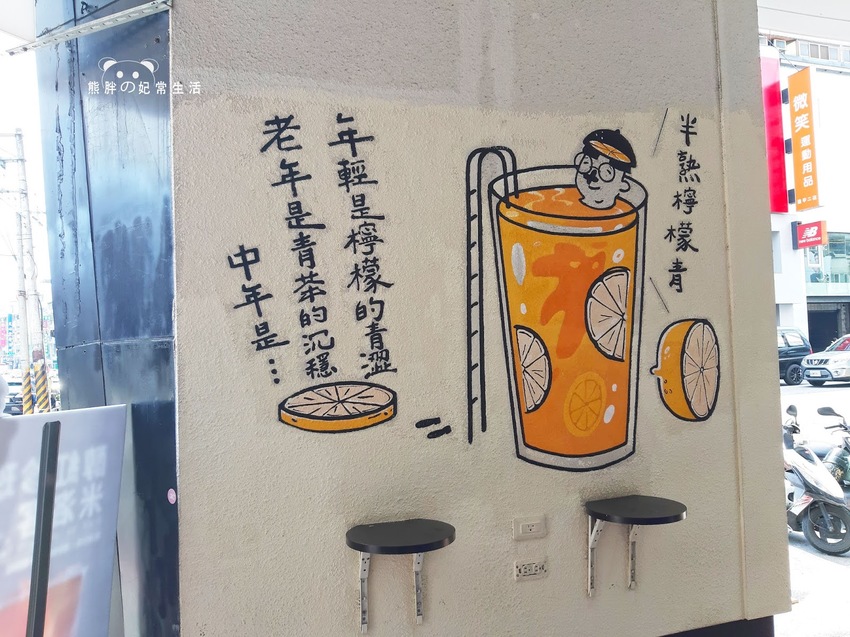 熊胖の妃常生活
年輕是檸檬的青澀
老年是青茶的沉穩
中年是…
半熟檸檬青
微笑運動用品
new balance